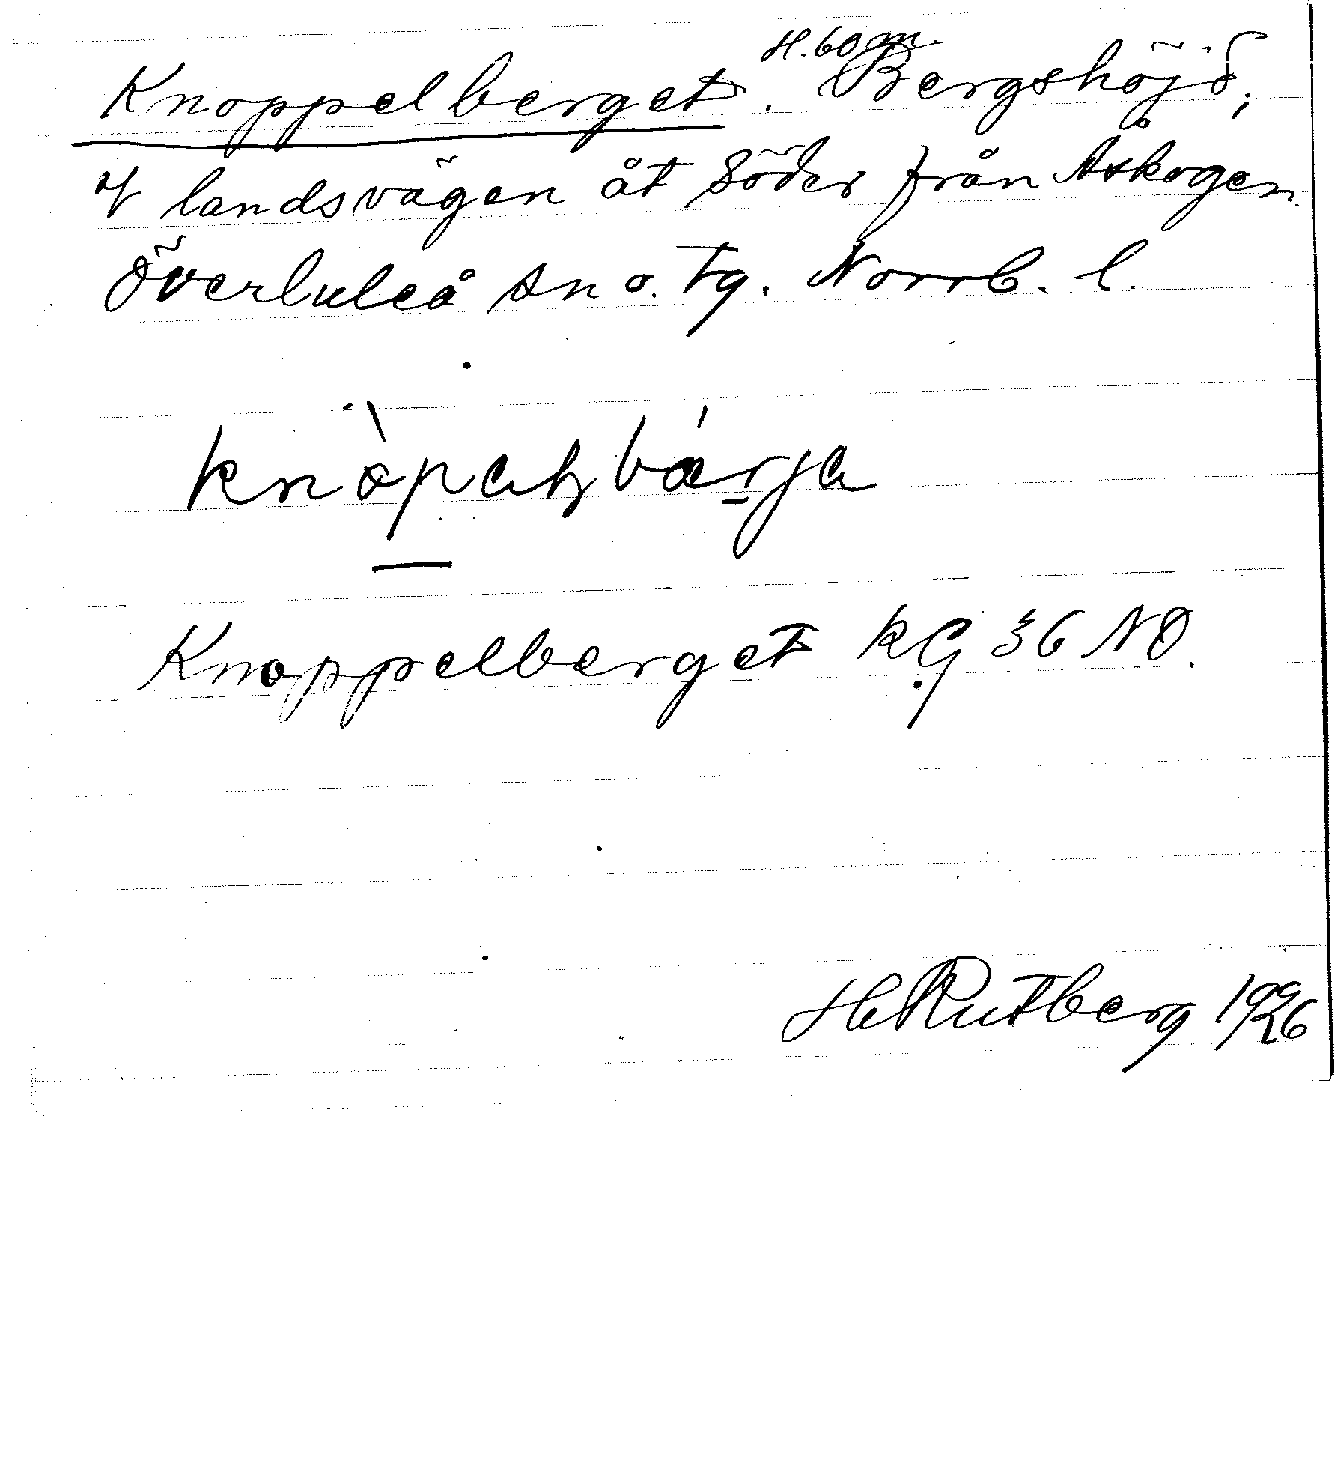 H. 60 m.
Knoppelberget. Bergshöjd,
landsvägen åt söder från Åskogen.
Överluleå sn o. tg. Norrb. l.
Knoppelberget kG 36 NO.
H Rutberg 1926